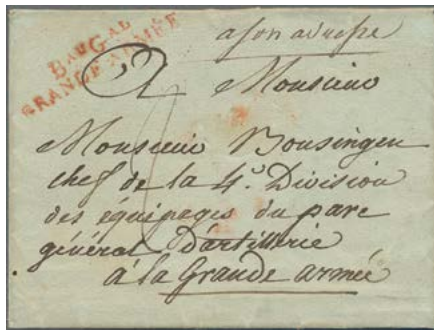 BAU GAL
GRANDE ARMÉE
a son adresse
A Monsieur
Monsieur Bousingen
chef de la 4e Division
des équipages du parc
général d'artillerie
à la Grande armée